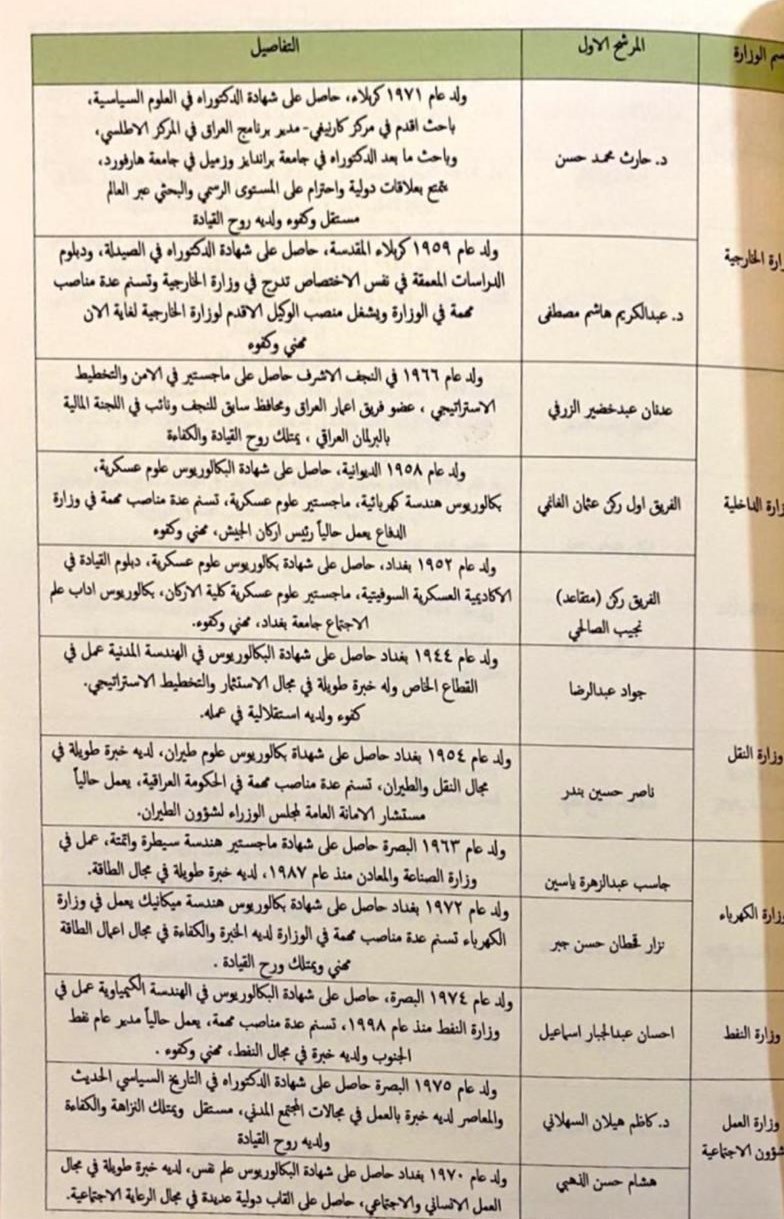 سم الوزارة
المرشح الاول
التفاصيل
زارة الخارجية
د. حارث محمد حسن
ولد عام ١٩٧١ كربلاء، حاصل على شهادة الدكتوراه في العلوم السياسية،
باحث اقدم في مركز كارنيغي- مدير برنامج العراق في المركز الاطلسي،
وباحث ما بعد الدكتوراه في جامعة برانديز وزميل في جامعة هارفورد،
يتمتع بعلاقات دولية واحترام على المستوى الرسمي والبحثي عبر العالم
مستقل وكفوء ولديه روح القيادة
د. عبدالكريم هاشم مصطفى
ولد عام ١٩٥٩ كربلاء المقدسة، حاصل على شهادة الدكتوراه في الصيدلة، ودبلوم
الدراسات المعمقة في نفس الاختصاص تدرج في وزارة الخارجية وتسنم عدة مناصب
مهمة في الوزارة ويشغل منصب الوكيل الاقدم لوزارة الخارجية لغاية الان
مهني وكفوء
زارة الداخلية
عدنان عبدخضير الزرفي
ولد عام ١٩٦٦ في النجف الاشرف حاصل على ماجستير في الامن والتخطيط
الاستراتيجي ، عضو فريق اعمار العراق ومحافظ سابق للنجف ونائب في اللجنة المالية
بالبرلمان العراقي ، يمتلك روح القيادة والكفاءة
الفريق اول ركن عثمان الغانمي
ولد عام ١٩٥٨ الديوانية، حاصل على شهادة البكالوريوس علوم عسكرية،
بكالوريوس هندسة كهربائية، ماجستير علوم عسكرية، تسنم عدة مناصب مهمة في وزارة
الدفاع يعمل حالياً رئيس اركان الجيش، مهني وكفوء
الفريق ركن (متقاعد)
نجيب الصالحي
ولد عام ١٩٥٢ بغداد، حاصل على شهادة بكالوريوس علوم عسكرية، دبلوم القيادة في
الأكاديمية العسكرية السوفيتية، ماجستير علوم عسكرية كلية الاركان، بكالوريوس اداب علم
الاجتماع جامعة بغداد، مهني وكفوء.
وزارة النقل
جواد عبدالرضا
ولد عام ١٩٤٤ بغداد حاصل على شهادة البكالوريوس في الهندسة المدنية عمل في
القطاع الخاص وله خبرة طويلة في مجال الاستثمار والتخطيط الاستراتيجي.
كفوء ولديه استقلالية في عمله.
ناصر حسين بندر
ولد عام ١٩٥٤ بغداد حاصل على شهداة بكالوريوس علوم طيران، لديه خبرة طويلة في
مجال النقل والطيران، تسنم عدة مناصب مهمة في الحكومة العراقية، يعمل حالياً
مستشار الامانة العامة لمجلس الوزراء لشؤون الطيران.
وزارة الكهرباء
جاسب عبدالزهرة ياسين
ولد عام ١٩٦٣ البصرة حاصل على شهادة ماجستير هندسة سيطرة واتمتة، عمل في
وزارة الصناعة والمعادن منذ عام ١٩٨٧، لديه خبرة طويلة في مجال الطاقة.
نزار قحطان حسن جبر
ولد عام ١٩٧٢ بغداد حاصل على شهادة بكالوريوس هندسة ميكانيك يعمل في وزارة
الكهرباء تسنم عدة مناصب مهمة في الوزارة لديه الخبرة والكفاءة في مجال اعمال الطاقة
مهني ويمتلك ورح القيادة .
وزارة النفط
احسان عبدالجبار اسماعيل
ولد عام ١٩٧٤ البصرة، حاصل على شهادة البكالوريوس في الهندسة الكيمياوية عمل في
وزارة النفط منذ عام ١٩٩٨، تسنم عدة مناصب مهمة، يعمل حالياً مدير عام نفط
الجنوب ولديه خبرة في مجال النفط، مهني وكفوء .
وزارة العمل
شؤون الاجتماعية
د. كاظم هيلان السهلاني
ولد عام ١٩٧٥ البصرة حاصل على شهادة الدكتوراه في التاريخ السياسي الحديث
والمعاصر لديه خبرة بالعمل في مجالات المجتمع المدني، مستقل ويمتلك النزاهة والكفاءة
ولديه روح القيادة
هشام حسن الذهبي
ولد عام ١٩٧٠ بغداد حاصل على شهادة البكالوريوس علم نفس، لديه خبرة طويلة في مجال
العمل الانساني والاجتماعي، حاصل على القاب دولية عديدة في مجال الرعاية الاجتماعية.